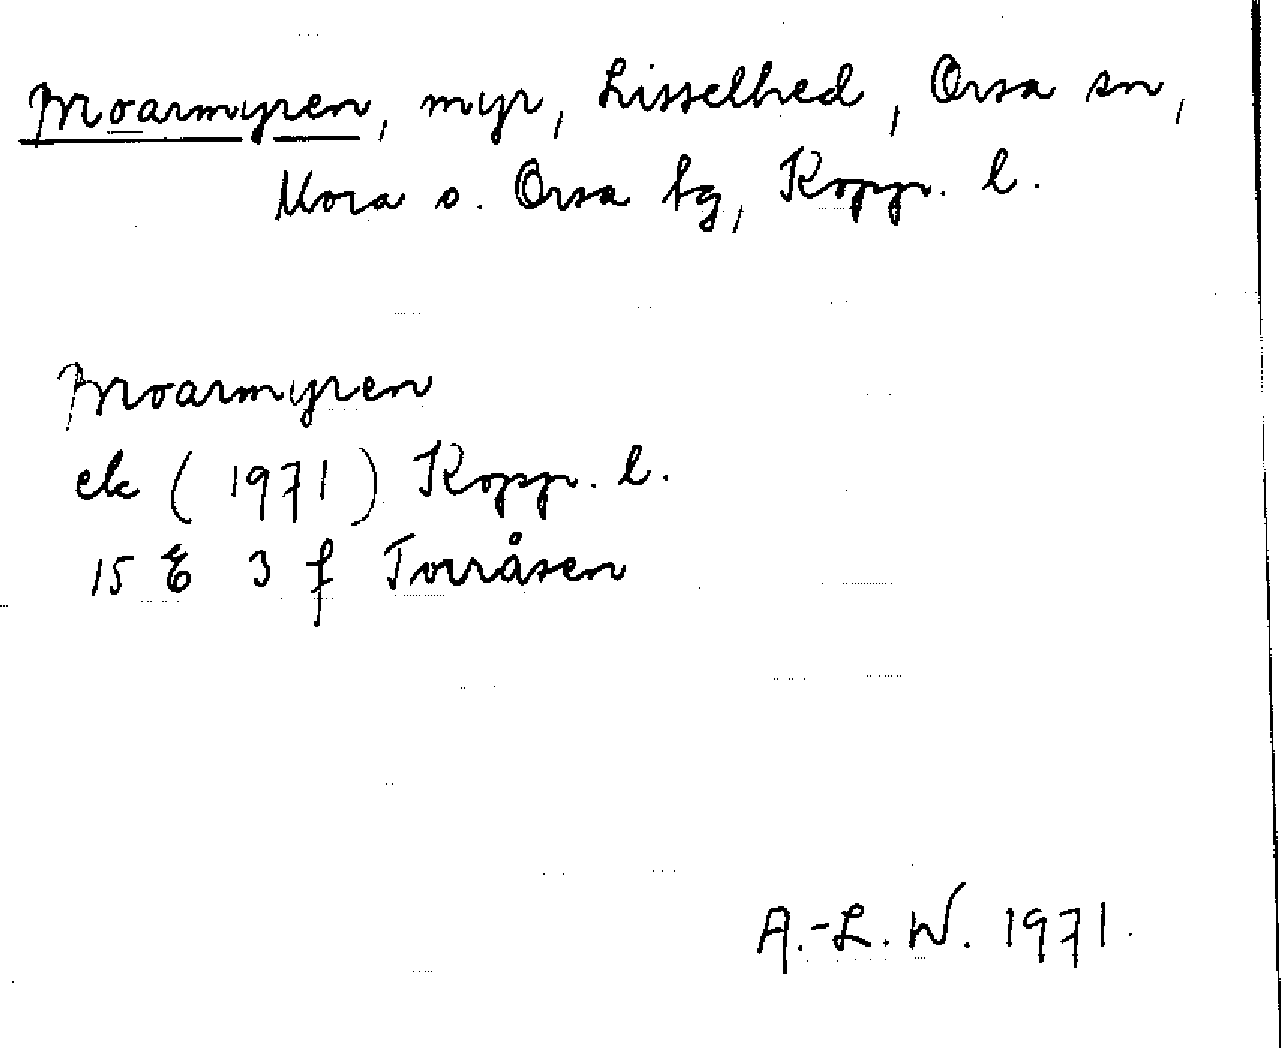 Broarmyren, myr, Lisselhed, Orsa sn,
Mora o. Orsa tg, Kopp. l.
Broarmyren
ek (1971) Kopp. l.
15 E 3 f Torråsen
A.-L. W. 1971.